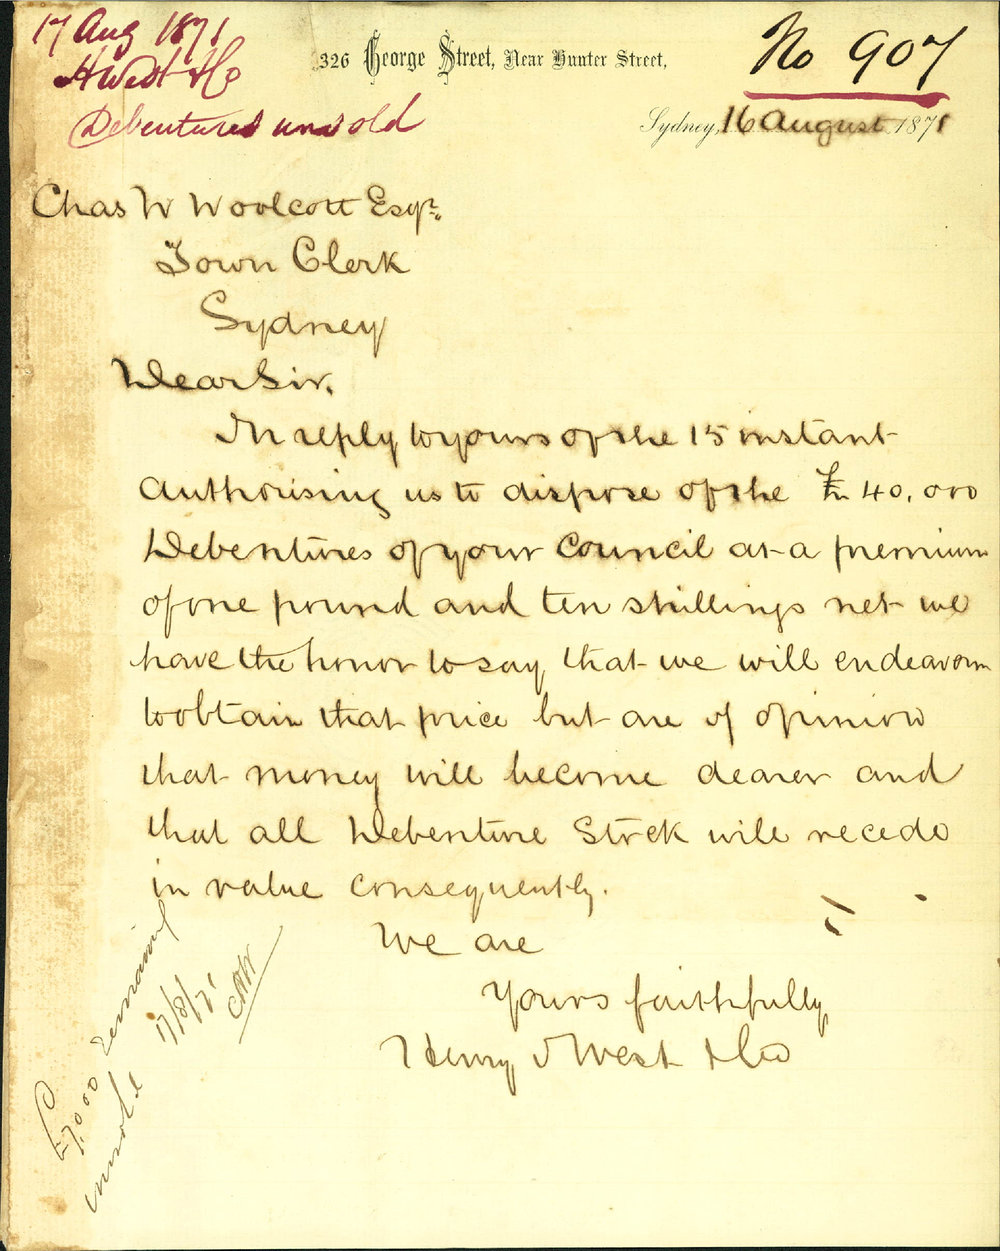 17 Aug 1871
H West & Co
Debentures unsold
326 George Street, Near Hunter Street,
No 907
Sydney, 16 August 1871
Chas W Woolcott Esqr.
Town Clerk
Sydney
Dear Sir.
In reply to yours of the 15 instant
authorising us to dispose of the £ 40,000
Debentures of your Council at a premium
of one pound and ten shillings net we
have the honor to say that we will endeavour
to obtain that price but are of opinion
that money will become dearer and
that all Debenture Stock will recede
in value consequently.
We are
Yours faithfully
Henry J West & Co
£7,000 remaining
unsold
17/8/71
CHW